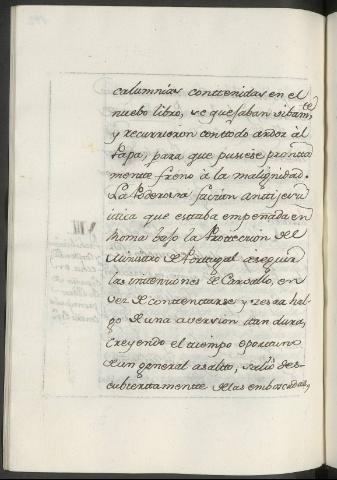 calumnias conttenidas en el
nuebo libro, se quejaban vibam.te
y recurrieron con ttodo ardor àl
Papa, para que pusiese prontta
mentte freno à la malignidad.
La Poderosa facion antijesui
ttica que estaba empeñada en
Roma bajo la Proteccion del
Ministro de Portugal à seguir
las inttenciones de Carvallo, en
vez de conttentarse y
go de una aversion ttan dura,
creyendo el ttiempo oporttuno
de un general asaltto, salio des-
cubierttamente de las emboscadas,